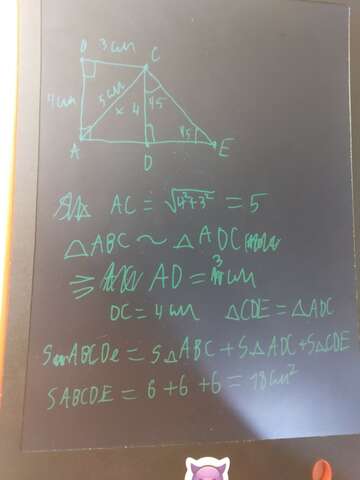 B 3 cm C
4 cm 5 cm 45
x 4
A D 45 E
AC = √4²+3² = 5
△ABC ~ △ADC
=> AD = 3 cm
DC = 4 cm △CDE = △ADC
SABCDe = S△ABC + S△ADC + S△CDE
SABCDE = 6 + 6 + 6 = 18cm²